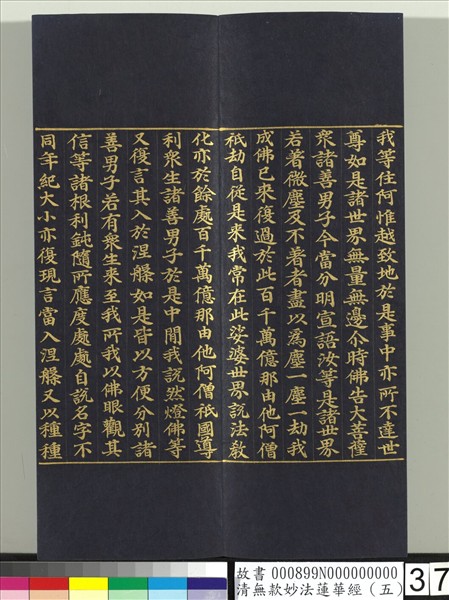 我等住阿惟越致地於是事中亦所不達世
尊如是諸世界無量無邊尒時佛告大菩薩
衆諸善男子今當分明宣語汝等是諸世界
若著微塵及不著者盡以為塵一塵一劫我
成佛已來復過於此百千萬億那由他阿僧
祇劫自從是來我常在此娑婆世界說法教
化亦於餘處百千萬億那由他阿僧祇國導
利衆生諸善男子於是中間我說然燈佛等
又復言其入於涅槃如是皆以方便分別諸
善男子若有衆生來至我所我以佛眼觀其
信等諸根利鈍隨所應度處處自說名字不
同年紀大小亦復現言當入涅槃又以種種
故書 000899N000000000
清無款妙法蓮華經（五）
37